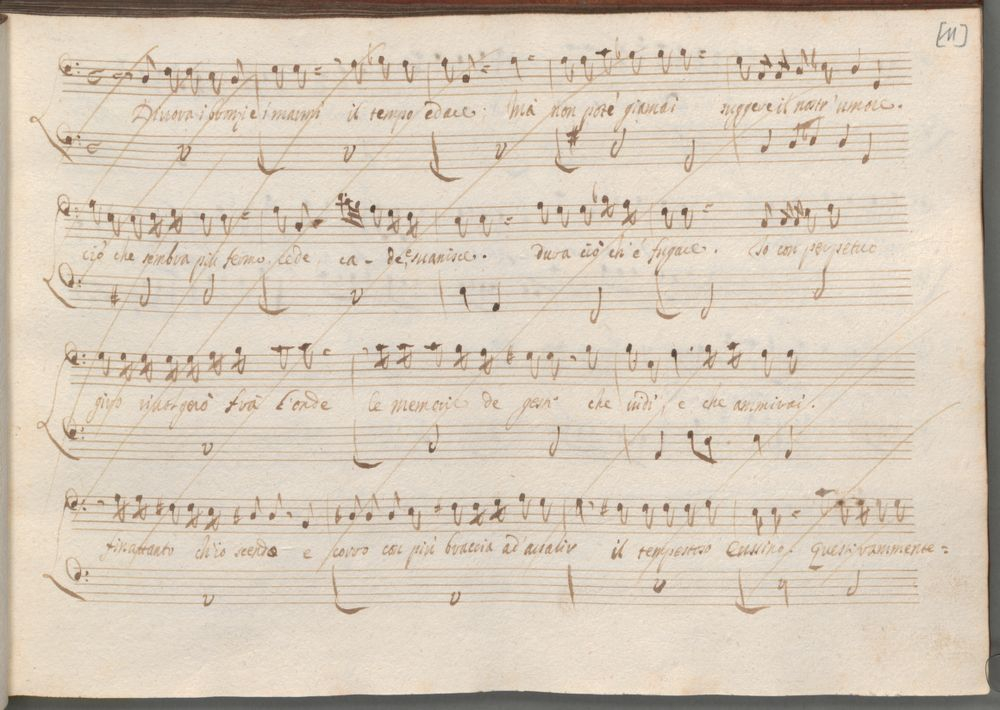 [11]
Divora i bronzi e i marmi il tempo edace; Mà non potè giamai sugger e il nostr' umore.
ciò che sembra più fermo cede, ca-de, suanisce. dura ciò ch'è fugace. Io con perpetuo
giro volgerò frà l'onde le memorie de gesti che vidi, e che ammirai.
frattanto ch'io scendo e corro con più braccia ad'assalir il tempestoso Eussino.